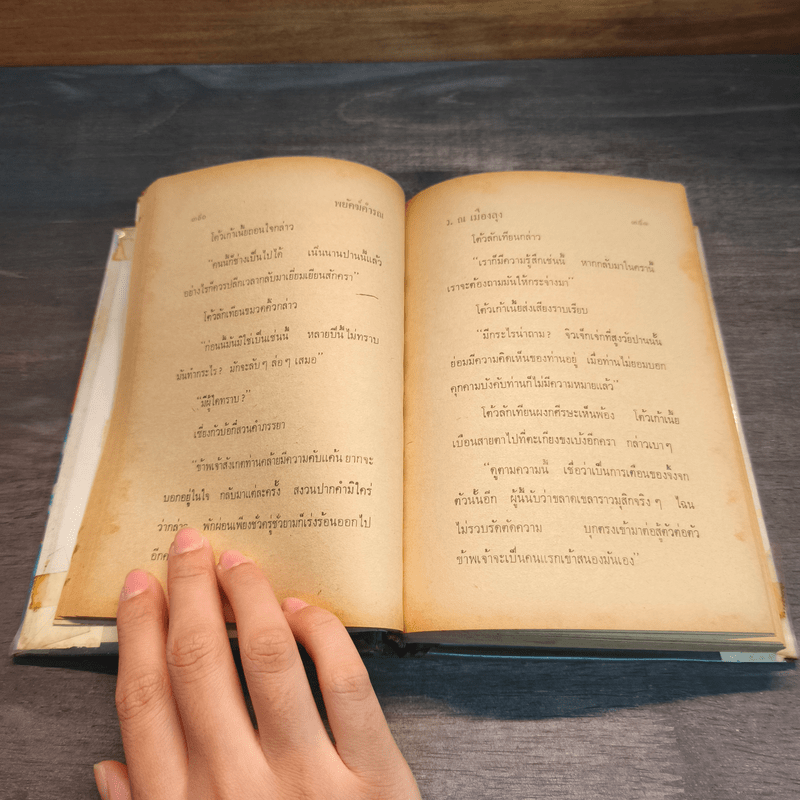 พยัคฆ์คำรณ
โต้วเก้าเนี้ยถอนใจกล่าว
"คนนี้ก็ช่างเป็นไปได้ เนิ่นนานปานนี้แล้ว
อย่างไรก็ควรปลีกเวลากลับมาเยี่ยมเยียนสักครา"
โต้วลักเทียนขมวดคิ้วกล่าว
"ก่อนนี้มันมิใช่เป็นเช่นนี้ หลายปีนี้ไม่ทราบ
มันทำกระไร? มักจะลับๆ ล่อๆ เสมอ"
"มีผู้ใดทราบ?"
เซี่ยงกัวป้อกี่สวนคำภรรยา
"ข้าพเจ้าสังเกตท่านคล้ายมีความคับแค้น ยากจะ
บอกอยู่ในใจ กลับมาแต่ละครั้ง สงวนปากคำมิใคร่
ว่ากล่าว พักผ่อนเพียงชั่วครู่ชั่วยามก็เร่งร้อนออกไป
ว. ณ เมืองลุง
โต้วลักเทียนกล่าว
"เราก็มีความรู้สึกเช่นนี้ หากกลับมาในครานี้
เราจะต้องถามมันให้กระจ่างมา"
โต้วเก้าเนี้ยส่งเสียงราบเรียบ
"มีกระไรน่าถาม? จิวเจ็กเจ่กที่สูงวัยปานนั้น
ย่อมมีความคิดเห็นของท่านอยู่ เมื่อท่านไม่ยอมบอก
คุกคามบังคับท่านก็ไม่มีความหมายแล้ว"
โต้วลักเทียนผงกศีรษะเห็นพ้อง โต้วเก้าเนี้ย
เบือนสายตาไปที่ตะเกียงของเบ้งอีกครา กล่าวเบาๆ
"ดูตามความนี้ เชื่อว่าเป็นการเตือนของจิ้งจก
ตัวนั้นอีก ผู้นี้นับว่าฉลาดเฉลาราวมุสิกจริงๆ ไฉน
ไม่รวบรัดตัดความ บุกตรงเข้ามาต่อสู้ตัวต่อตัว
ข้าพเจ้าจะเป็นคนแรกเข้าสนองมันเอง"